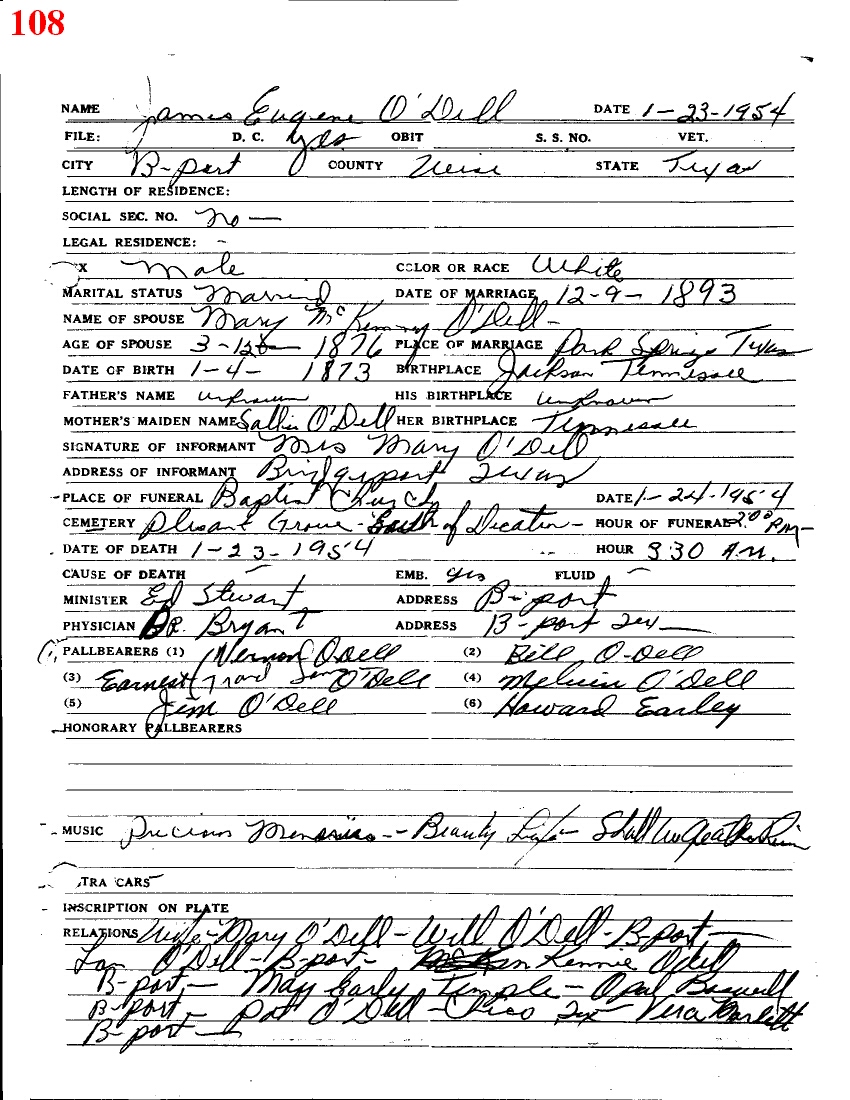 108
NAME James Eugene O'Dell DATE 1-23-1954
FILE: D. C. yes OBIT S. S. NO. VET.
CITY B-port COUNTY Wise STATE Texas
LENGTH OF RESIDENCE:
SOCIAL SEC. NO. no —
LEGAL RESIDENCE: -
X Male COLOR OR RACE White
MARITAL STATUS Married DATE OF MARRIAGE 12-9-1893
NAME OF SPOUSE Mary McKenney O'Dell -
AGE OF SPOUSE 3- 1876 PLACE OF MARRIAGE Park Springs Texas
DATE OF BIRTH 1-4-1873 BIRTHPLACE Jackson Tennessee
FATHER'S NAME unknown HIS BIRTHPLACE unknown
MOTHER'S MAIDEN NAME Sallie O'Dell HER BIRTHPLACE Tennessee
SIGNATURE OF INFORMANT Mrs Mary O'Dell
ADDRESS OF INFORMANT Bridgeport Texas
PLACE OF FUNERAL Baptist Church DATE 1-24-1954
CEMETERY Plesant Grove - South of Decatur - HOUR OF FUNERAL 2:00 PM -
DATE OF DEATH 1-23-1954 HOUR 3:30 A.M.
CAUSE OF DEATH — EMB. yes FLUID —
MINISTER Ed Stewart ADDRESS B-port
PHYSICIAN DR. Bryant ADDRESS B-port Tex
PALLBEARERS (1) Vernon O'Dell (2) Bill O-Dell
(3) Earnest Grand Son O'Dell (4) Melvin O'Dell
(5) Jim O'Dell (6) Howard Earley
HONORARY PALLBEARERS
MUSIC Precious Memories -- Beauty Life - Shall We Gather River
TRA CARS
INSCRIPTION ON PLATE
RELATIONS Wife - Mary O'Dell - Will O'Dell - B-port —
O'Dell - B-port - Kennie Odell
B-port - May Early Temple - Opal Boswell
B-port - Pat O'Dell - Chico Tex - Vera
B-port —